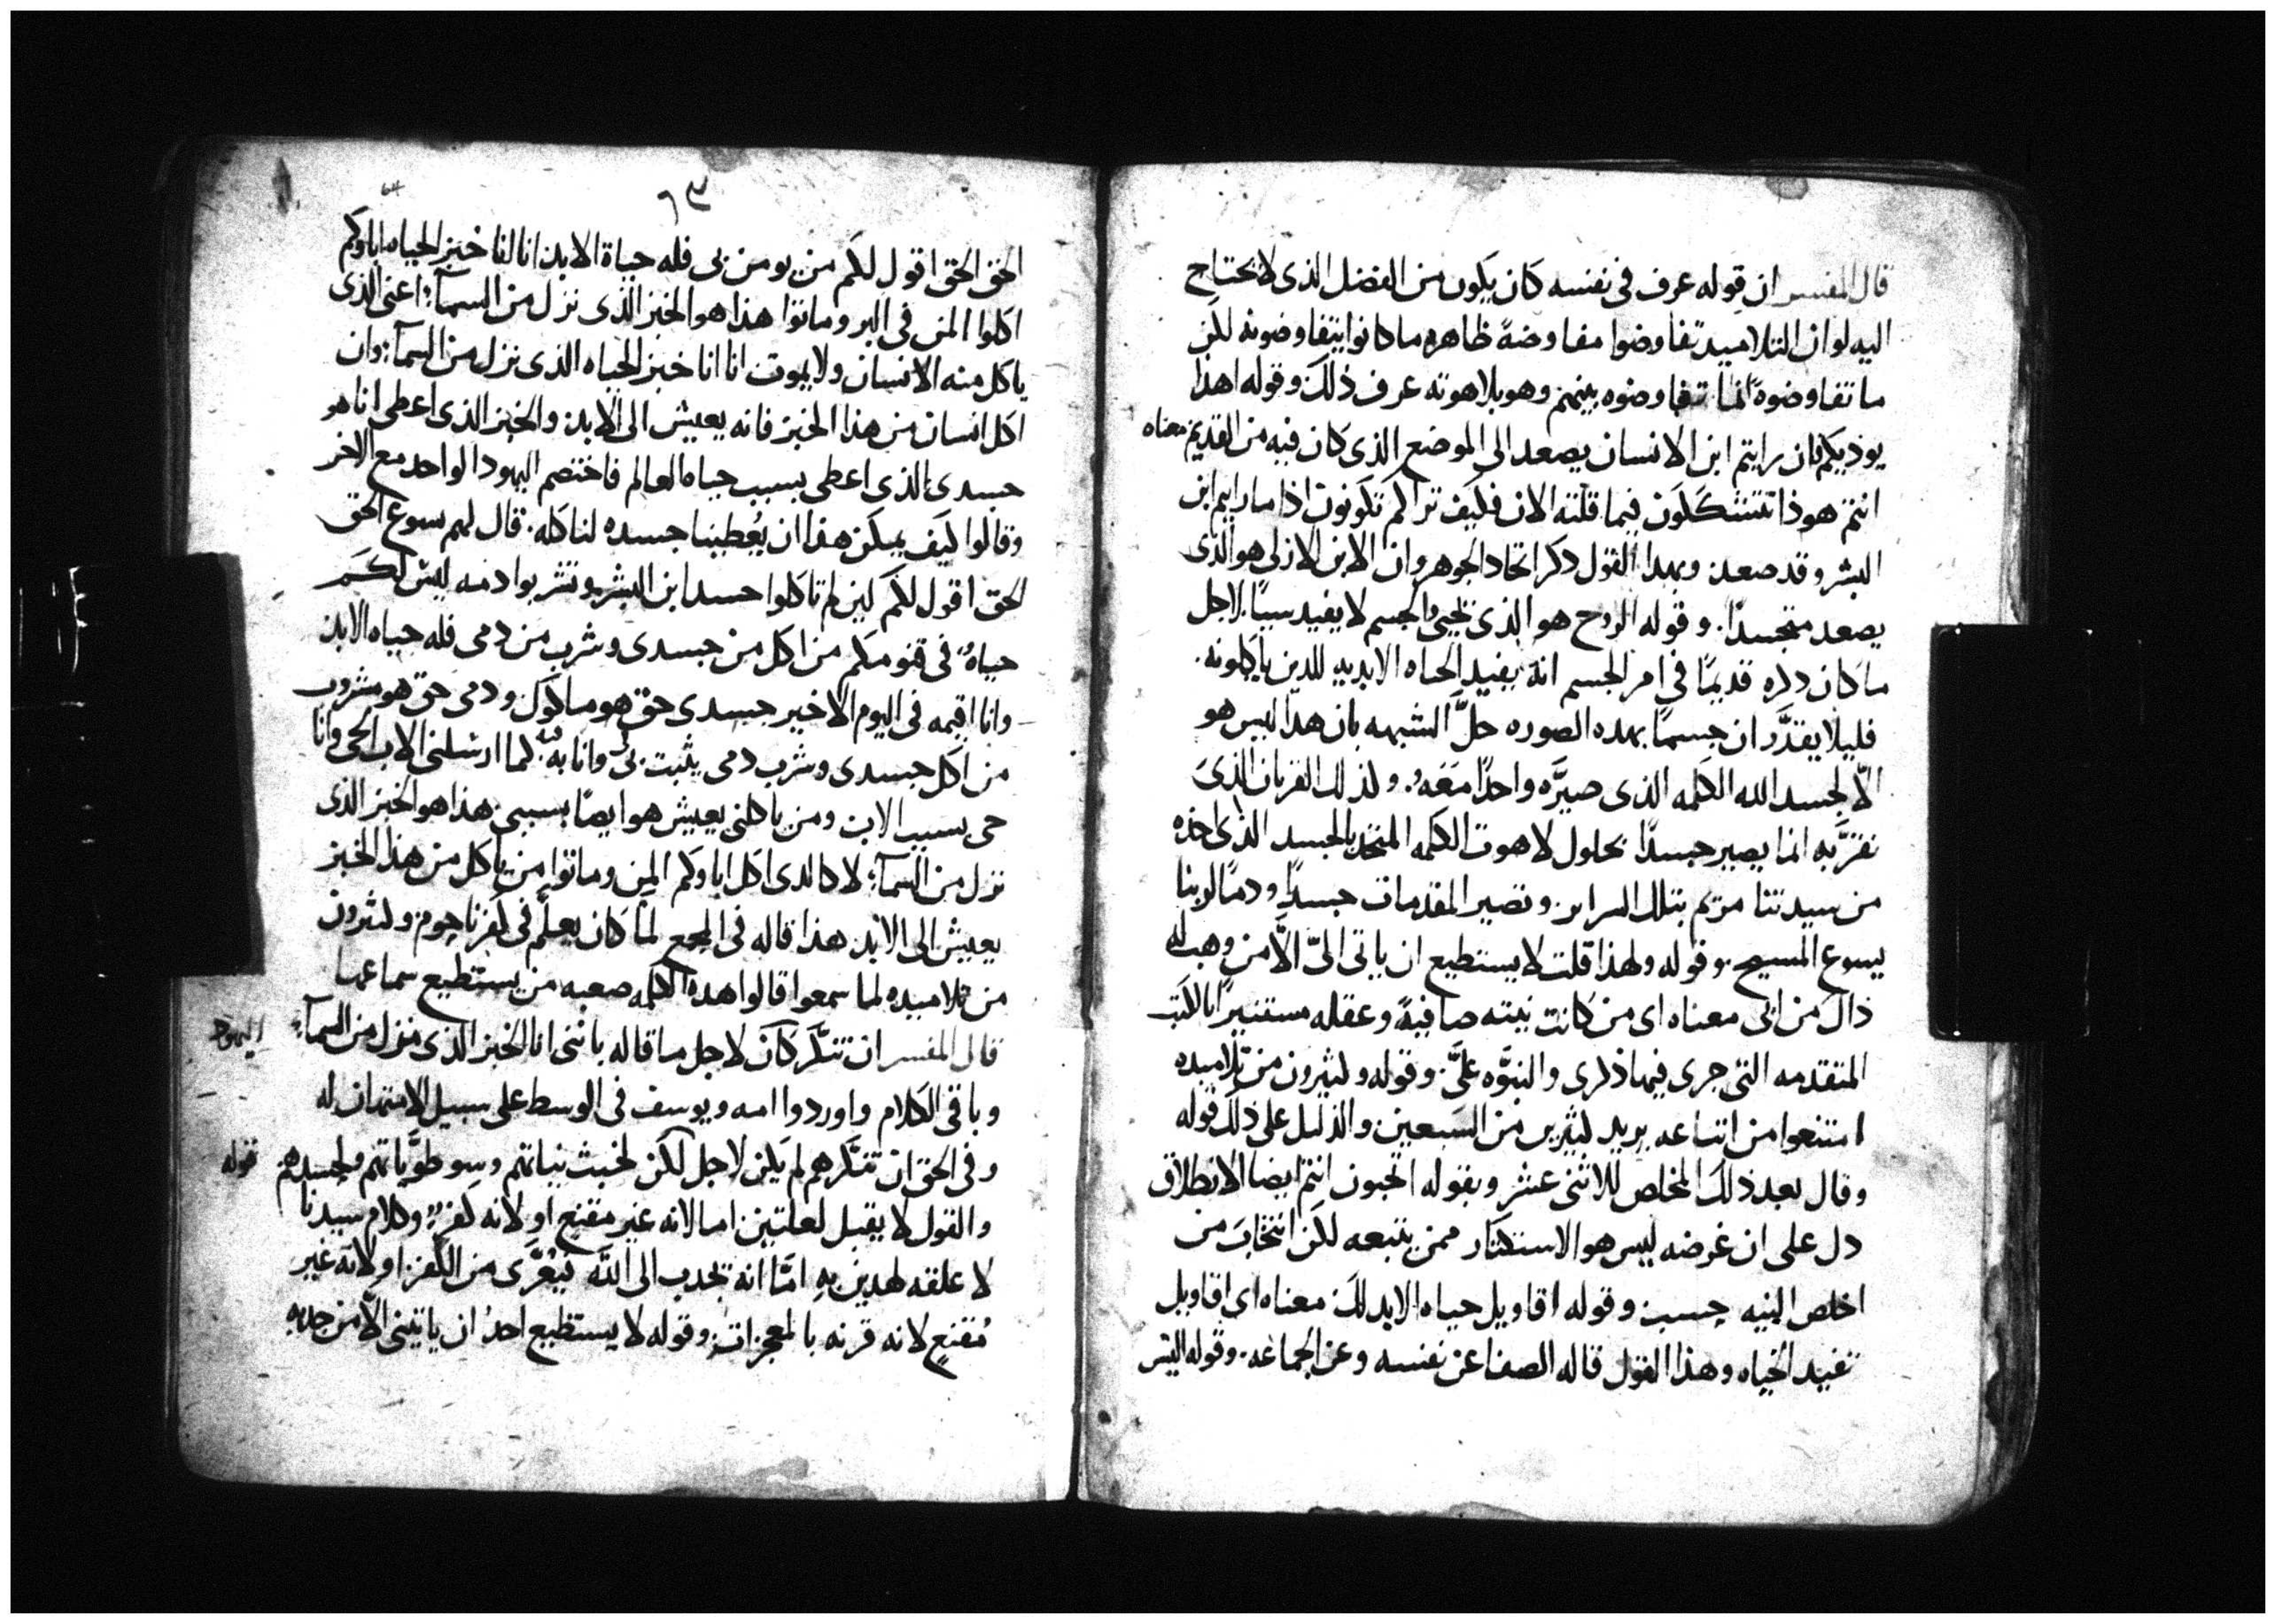 قال المفسر ان قوله عرف في نفسه كان يكون من الفضل الذى لا يحتاج
اليه لو ان التلاميد تفاوضوا مفاوضةً ظاهره ما كانوا يتفاوضونه لكن
ما تفاوضوة انما تفاوضوه بينهم وهو بلاهوته عرف ذلك وقوله اهذا
يوذيكم فان رايتم ابن الانسان يصعد الى الموضع الذى كان فيه من القديم معناه
انتم هوذا تتشككون فيما قلته الان فكيف تراكم تكونون اذا ما رايتم ابن
البشر وقد صعد وبهدا القول دكر اتحاد الجوهر وان الابن الازلى هو الذى
يصعد متجسدًا. وقوله الروح هو الذى يحيى والجسم لا يفيد سيا. لاجل
ما كان دكره قديمًا في امر الجسم انه يفيد الحياه الابديه للدين ياكلونه.
فليلا يقدَّر ان جسمًا بهده الصوره حلَّ الشبهه بان هدا ليس هو
الّا لجسد الله الكلمه الذى صيَّره واحدًا معَهُ. ولذلك القربان الذى
نقرّبه انما يصير جسدًا بحلول لاهوت الكلمه المتحد بالجسد الذى اخذه
من سيدتنا مريم بتلك السراير. وتصير المقدمات جسدًا ودمًا لربنا
يسوع المسيح. وقوله ولهذا قلت لا يستطيع ان ياتى الىّ الّا من وهب له
ذاك من ابى معناه اى من كانت نيته صافيةً وعقله مستنيرًا بالكتب
المتقدمه التى جرى فيها ذكرى والنبوَّه علىَّ. وقوله وكثيرون من تلاميده
امتنعوا من اتباعه يريد كثيرين من السبعين والدليل على ذلك قوله
وقال بعد ذلك المخلص للاثنى عشر وبقوله اتحبون انتم ايضا الانطلاق
دل على ان غرضه ليس هو الاستكثار ممن يتبعه لكن انتخاب من
اخلص النيه حسب وقوله اقاويل حياه الابد لك معناه اى اقاويل
تفيد الحياه وهذا القول قاله الصفا عن نفسه وعن الجماعه. وقوله اليس
٦٣
64
الحق الحق اقول لكم من يومن بى فله حياة الابد انا انا خبز الحياه اباوكم
اكلوا المن فى البر وماتوا هذا هو الخبز الذى نزل من السمآ؛ اعنى الذى
ياكل منه الانسان ولا يموت انا انا خبز الحياه الذى نزل من السمآ؛ وان
اكل انسان من هذا الخبز فانه يعيش الى الابد والخبز الذى اعطى انا هو
جسدى الذى اعطى بسبب حياه العالم فاختصم اليهود الواحد مع الاخر
وقالوا كيف يمكن هذا ان يُعطينا جسده لناكله. قال لهم يسوع الحق
الحق اقول لكم لين لم تاكلوا جسد ابن البشر وتشربوا دمه ليس لكم
حياهُ فى قنومكم من اكل من جسدى وشرب من دمى فله حياه الابد
وانا اقيمه فى اليوم الاخير جسدى حق هو ماكول ودمى حق هو مشروب
من اكل جسدى وشرب دمى يثبت بى وانا به فيه كما ارسلنى الاب الحى وانا
حى بسبب الاب ومن ياكلنى يعيش هو ايضًا بسببى هذا هو الخبز الذى
نزل من السمآ؛ لا كالدى اكل اباوكم المن وماتوا من ياكل من هذا الخبز
يعيش الى الابد هذا قاله فى المجمع لما كان يعلّم فى كفرناحوم وكثيرون
من تلاميده لما سمعوا قالوا هده الكلمه صعبه من يستطيع سماعها
قال المفسر ان تنكّر كان لاجل ما قاله باننى انا الخبز الذى نزل من السمآ؛
اليهود
وباقى الكلام واوردوا امه ويوسف فى الوسط على سبيل الامتهان له
وفى الحق ان تنكّرهم لم يكن لاجل لكن لخبث نياتهم وسو طوياتهم ولحسدهم
قوله
والقول لا يقبل لعلتين اما لانه غير مقنع او لانه كفرٌ. وكلام سيدنا
لا علقه لهدين به امّا انه يجدب الى اللَّه فيُعَّرى من الكفر. او لانه غير
مُقنع لانه قرنه بالمعجزات. وقوله لا يستطيع احدُ ان ياتينى الّا من جدبه